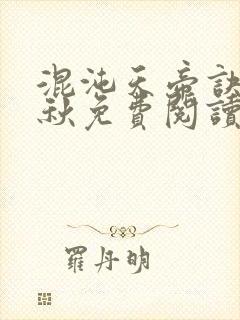 混沌天帝訣
秋免費閱讀
羅丹明